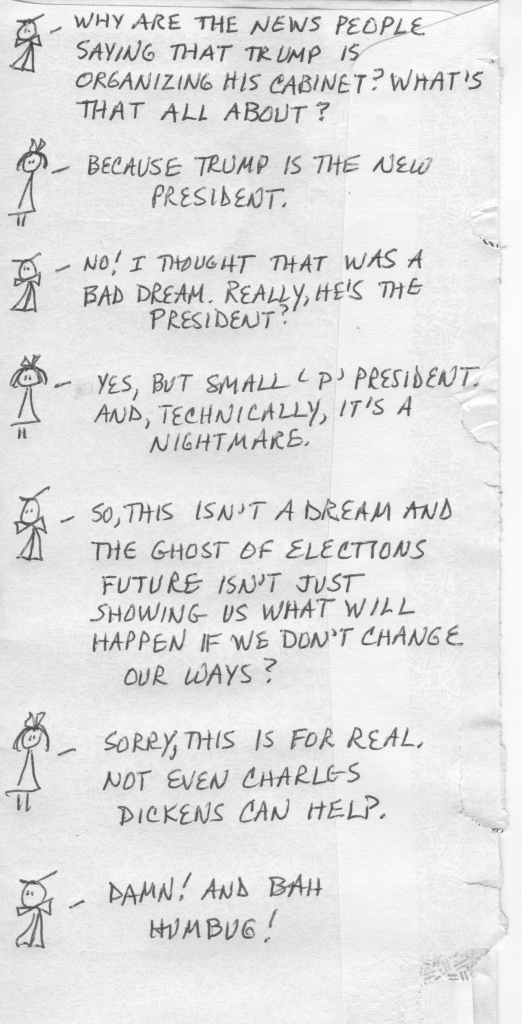 WHY ARE THE NEWS PEOPLE
SAYING THAT TRUMP IS
ORGANIZING HIS CABINET? WHAT'S
THAT ALL ABOUT?
BECAUSE TRUMP IS THE NEW
PRESIDENT.
NO! I THOUGHT THAT WAS A
BAD DREAM. REALLY, HE'S THE
PRESIDENT?
YES, BUT SMALL 'P' PRESIDENT.
AND, TECHNICALLY, IT'S A
NIGHTMARE.
SO, THIS ISN'T A DREAM AND
THE GHOST OF ELECTIONS
FUTURE ISN'T JUST
SHOWING US WHAT WILL
HAPPEN IF WE DON'T CHANGE
OUR WAYS?
SORRY, THIS IS FOR REAL.
NOT EVEN CHARLES
DICKENS CAN HELP.
DAMN! AND BAH
HUMBUG!